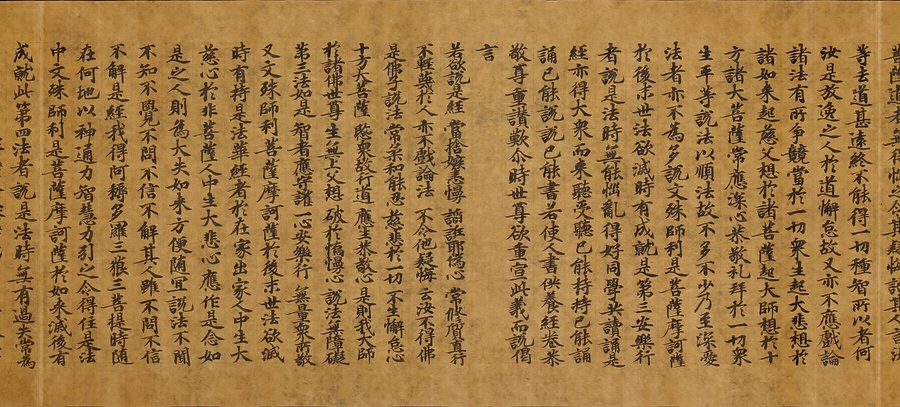 菩薩道者無得惱之令其疑悔語其人言
等去道甚遠終不能得一切種智所以者何
汝是放逸之人於道懈怠故又亦不應戲論
諸法有所爭競當於一切衆生起大悲想於
諸如來起慈父想於諸菩薩起大師想於十
方諸大菩薩常應深心恭敬礼拜於一切衆
生平等說法以順法故不多不少乃至深愛
法者亦不為多說文殊師利是菩薩摩訶薩
於後末世法欲滅時有成就是第三安樂行
者說是法時無能惱亂得好同學共讀誦是
經亦得大衆而來聽受聽已能持持已能誦
誦已能說說已能書若使人書供養經卷恭
敬尊重讚歎尒時世尊欲重宣此義而說偈
言
若欲說是經 當捨嫉恚慢 諂誑邪偽心 常修質直行
不輕蔑於人 亦不戲論法 不令他疑悔 云汝不得佛
是佛子說法 常柔和能忍 慈悲於一切 不生懈怠心
十方大菩薩 愍衆故行道 應生恭敬心 是則我大師
於諸佛世尊 生無上父想 破於憍慢心 說法無障礙
第三法如是 智者應守護 一心安樂行 無量衆所敬
又文殊師利菩薩摩訶薩於後末世法欲滅
時有持是法華經者於在家出家人中生大
慈心於非菩薩人中生大悲心應作是念如
是之人則為大失如來方便随宜說法不聞
不知不覺不問不信不解其人雖不問不信
不解是經我得阿耨多羅三藐三菩提時随
在何地以神通力智慧力引之令得住是法
中文殊師利是菩薩摩訶薩於如來滅後有
成就此第四法者說是法時無有過失常為